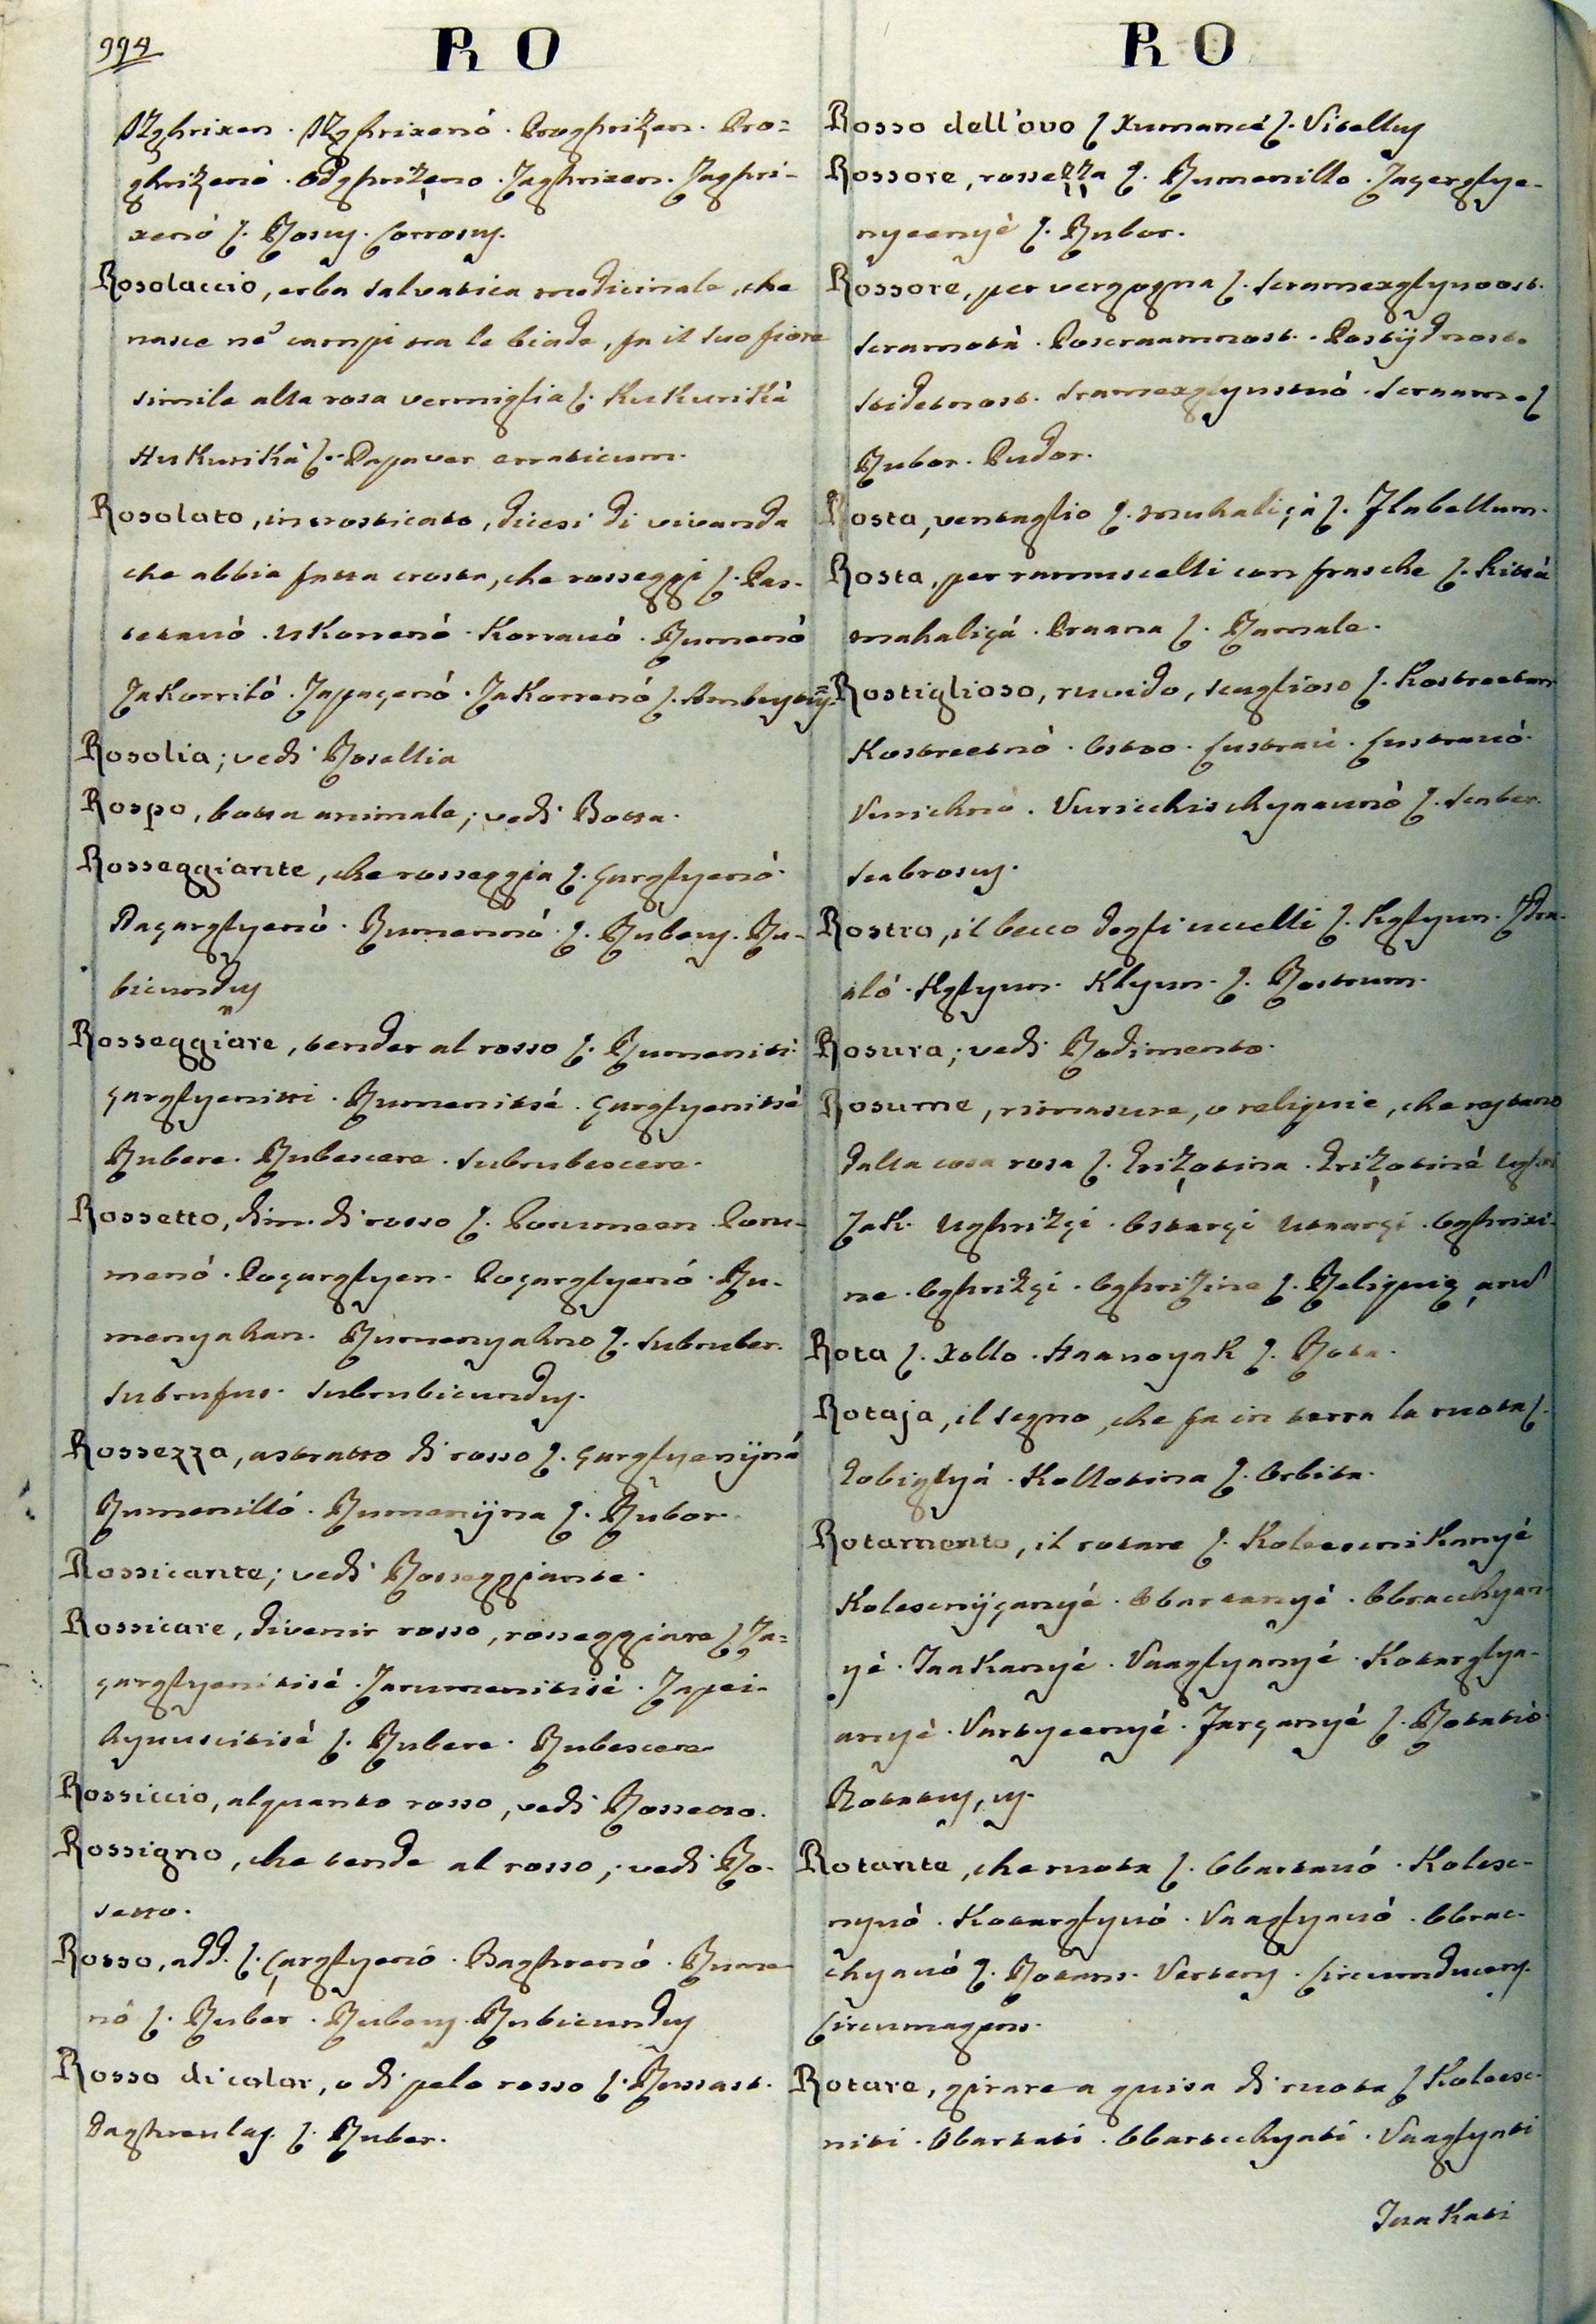 994
R O
Izghrixen . Izghrixenó . Proghrixen . Pro=
ghrixenó . Odghrixeno . Zaghrixen . Zaghri-
xenó ſ. Rosus . Corrosus.
Rosolaccio, erba salvatica medicinale, che
nasce ne' campi tra le biade, fa il suo fiore
simile alla rosa vermiglia ſ. Kukurikà
Kukurikà ſ. Papaver erraticum.
Rosolato, incrosticato, dicesi di vivanda
che abbia fatta crosta, che rosseggi ſ.
uKorrenó . Korrauó . Rumenó
ZaKorritó . Zapaçenó . ZaKorrenó ſ. Ambustus.
Rosolia; vedi Rosellia
Rospo, botta animale; vedi Botta.
Rosseggiante, che rosseggia ſ. çarglyenó.
Naçarglyenó . Rumennó . ſ. Rubens . Ru-
bicundus
Rosseggiare, tender al rosso ſ. Rumeniti.
çarglyenitti . Rumenitsé . çarglyenitsé
Rubere . Rubescere . Subrubescere.
Rossetto, dim. di rosso ſ. Porumeen . Poru-
menó . Poçarglyen . Poçarglyenó . Ru-
menyahan . Rumenyahno ſ. Subruber.
Subrufus . Subrubicundus.
Rossezza, astratto di rosso ſ. çarglyenÿná
Rumenilló . Rumenÿna ſ. Rubor.
Rossicante; vedi Rosseggiante.
Rossicare, divenir rosso, rosseggiare ſ Za=
çarglyenitisé . Zarumenitisé .
ſ. Rubere . Rubescere
Rossiccio, alquanto rosso, vedi Rossetto.
Rossigno, che tende al rosso; vedi Ro-
setto.
Rosso, add. ſ. çarglyenó . Baghrenó . Rume
nó ſ. Rubér . Rubens . Rubicundus
Rosso di color, o di pelo rosso ſ. Russast.
Baghreulas. ſ. Ruber.
R O
Rosso dell'ovo ſ Xumancé ſ. Vitellus
Rossore, rossezza ſ. Rumenillo . Zaçerglye-
nyeenyé ſ. Rubor.
Rossore, per vergogna ſ. Sramexglyivost.
Sramotà . Poscraamnost . Postÿdnost.
Stidetnost . Sramexglyustuó . Scraam . ſ
Rubor . Pudor.
Rosta, ventaglio ſ. Muhaliçà ſ. Flabellum.
Rosta, per ramuscelli con frasche ſ. Kittà
mahaliçá . Praana ſ. Ramale.
Rostiglioso, ruvido, scaglioso ſ. Kostreetan
Kostreetnó . Ostro . Çustrau . Çustrauó.
ſ. Scaber.
Scabrosus.
Rostro, il becco degli uccelli ſ. Kglyun .
Kglyun . Klyun . ſ. Rostrum.
Rosura; vedi Rodimento.
Rosume, rimasure, o reliquie, che restano
dalla cosa rosa ſ. Grizotina . Grizotiné
Ughrizçi . Ostarçi Ustarçi . Oghrixi-
ne . Oghrizçi . Oghrizine ſ. Reliquię, arum
Rota ſ. Xollo . ſ. Rota.
Rotaja, il segno, che fa in terra la ruota ſ.
Kollotina ſ. Orbita.
Rotamento, il rotare ſ.
Kolescnÿçanyé . Obartanyé . Obracchyan
yé . . Vaaglyanyé . Kotarglya-
anyé . Vartyeenyé . ſ. Rotatio.
Rotatus, us.
Rotante, che ruota ſ. Obartauó . Kolesc-
nyuó . Kotarglyuó . Vaaglyauó . Obrac-
chyauó ſ. Rotans . Vertens . Circumducens.
Circumagens.
Rotare, girare a guisa di ruota ſ Koleesc-
niti . Obartati . Obartcchyati . Vaaglyati